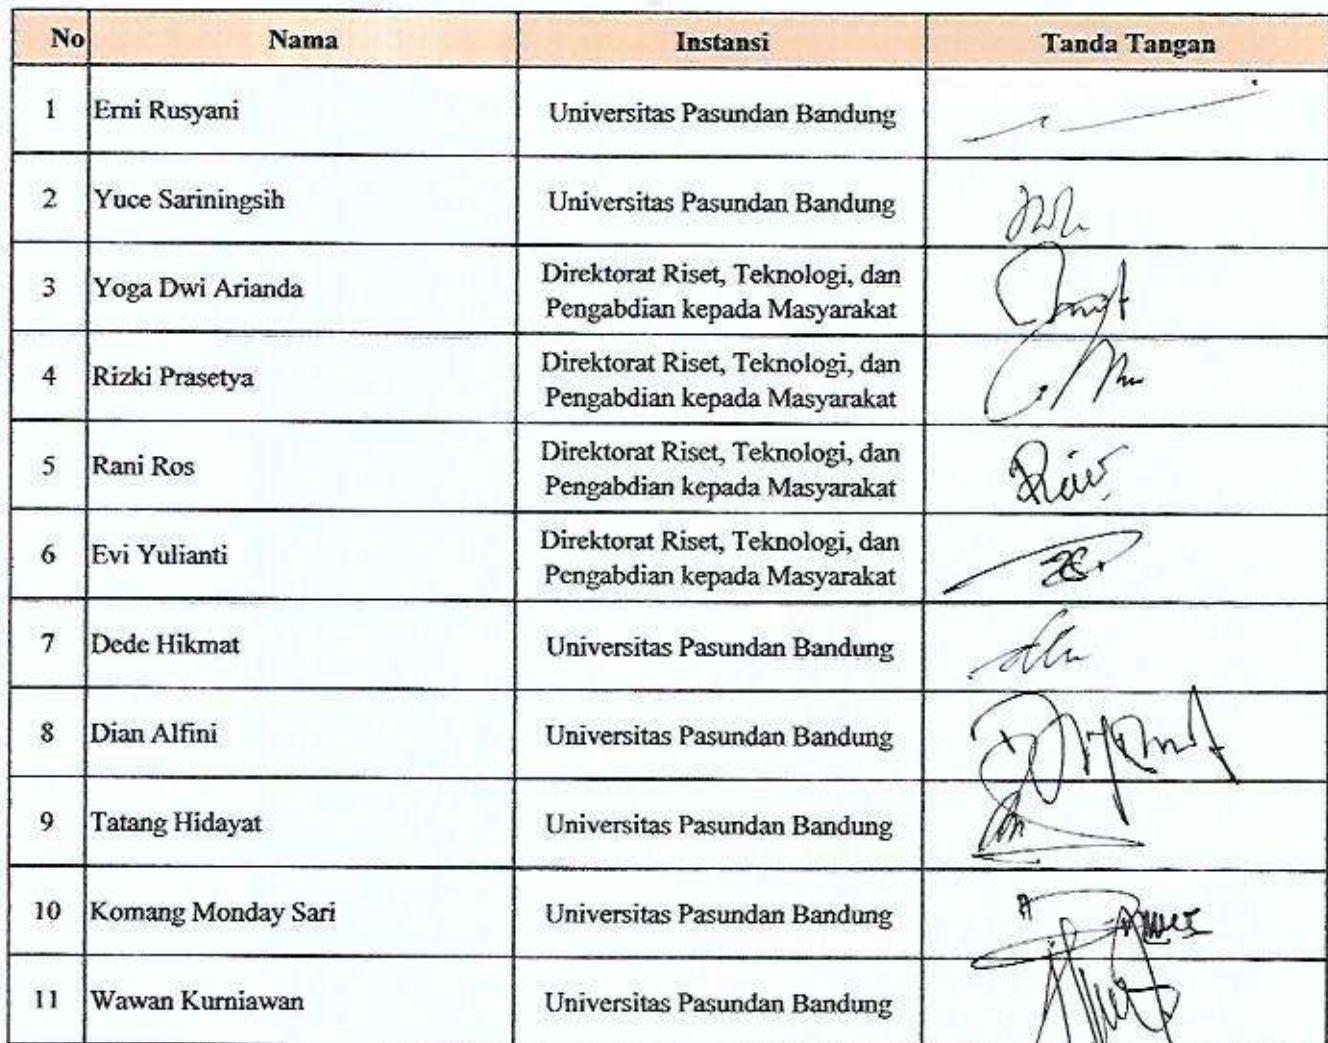 No Nama Instansi Tanda Tangan
1 Erni Rusyani Universitas Pasundan Bandung
2 Yuce Sariningsih Universitas Pasundan Bandung
3 Yoga Dwi Arianda Direktorat Riset, Teknologi, dan
Pengabdian kepada Masyarakat
4 Rizki Prasetya Direktorat Riset, Teknologi, dan
Pengabdian kepada Masyarakat
5 Rani Ros Direktorat Riset, Teknologi, dan
Pengabdian kepada Masyarakat
6 Evi Yulianti Direktorat Riset, Teknologi, dan
Pengabdian kepada Masyarakat
7 Dede Hikmat Universitas Pasundan Bandung
8 Dian Alfini Universitas Pasundan Bandung
9 Tatang Hidayat Universitas Pasundan Bandung
10 Komang Monday Sari Universitas Pasundan Bandung
11 Wawan Kurniawan Universitas Pasundan Bandung